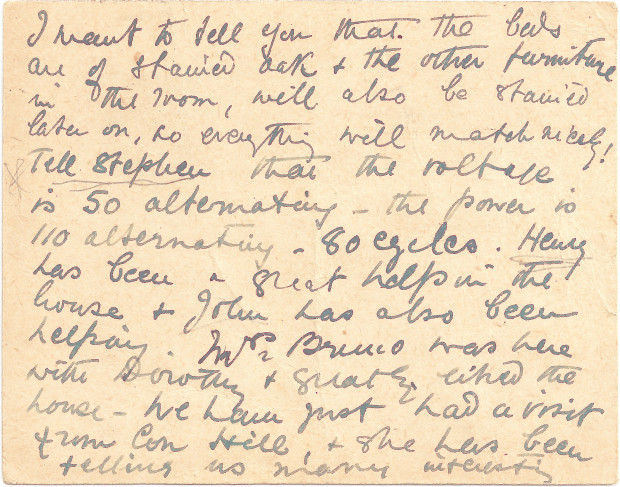 I want to tell you that. the beds
are of stained oak & the other furniture
in the room, will also be stained
later on, so everything will match nicely!
Tell Stephen that the voltage
is 50 alternating - the power is
110 alternating - 80 cycles. Henry
has been a great help in the
house & John has also been
helping Mrs Bruno was here
with Dorothy & greatly liked the
house - We have just had a visit
from Con Hill, & she has been
telling us many interesting